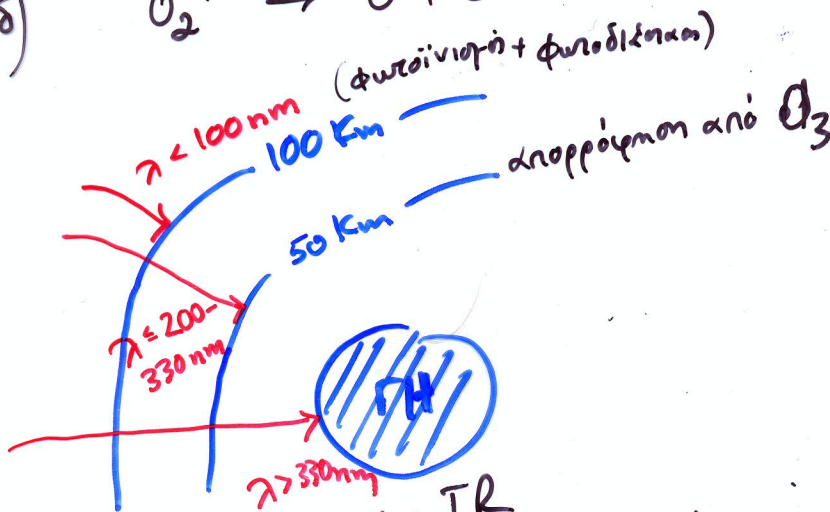 O₂
(φωτοϊνισμό + φωτοδιάσπαση)
λ < 100 nm
100 Km
απορρόφηση από O₃
50 Km
λ ≤ 200-
330 nm
ΓΗ
λ > 330nm
IR